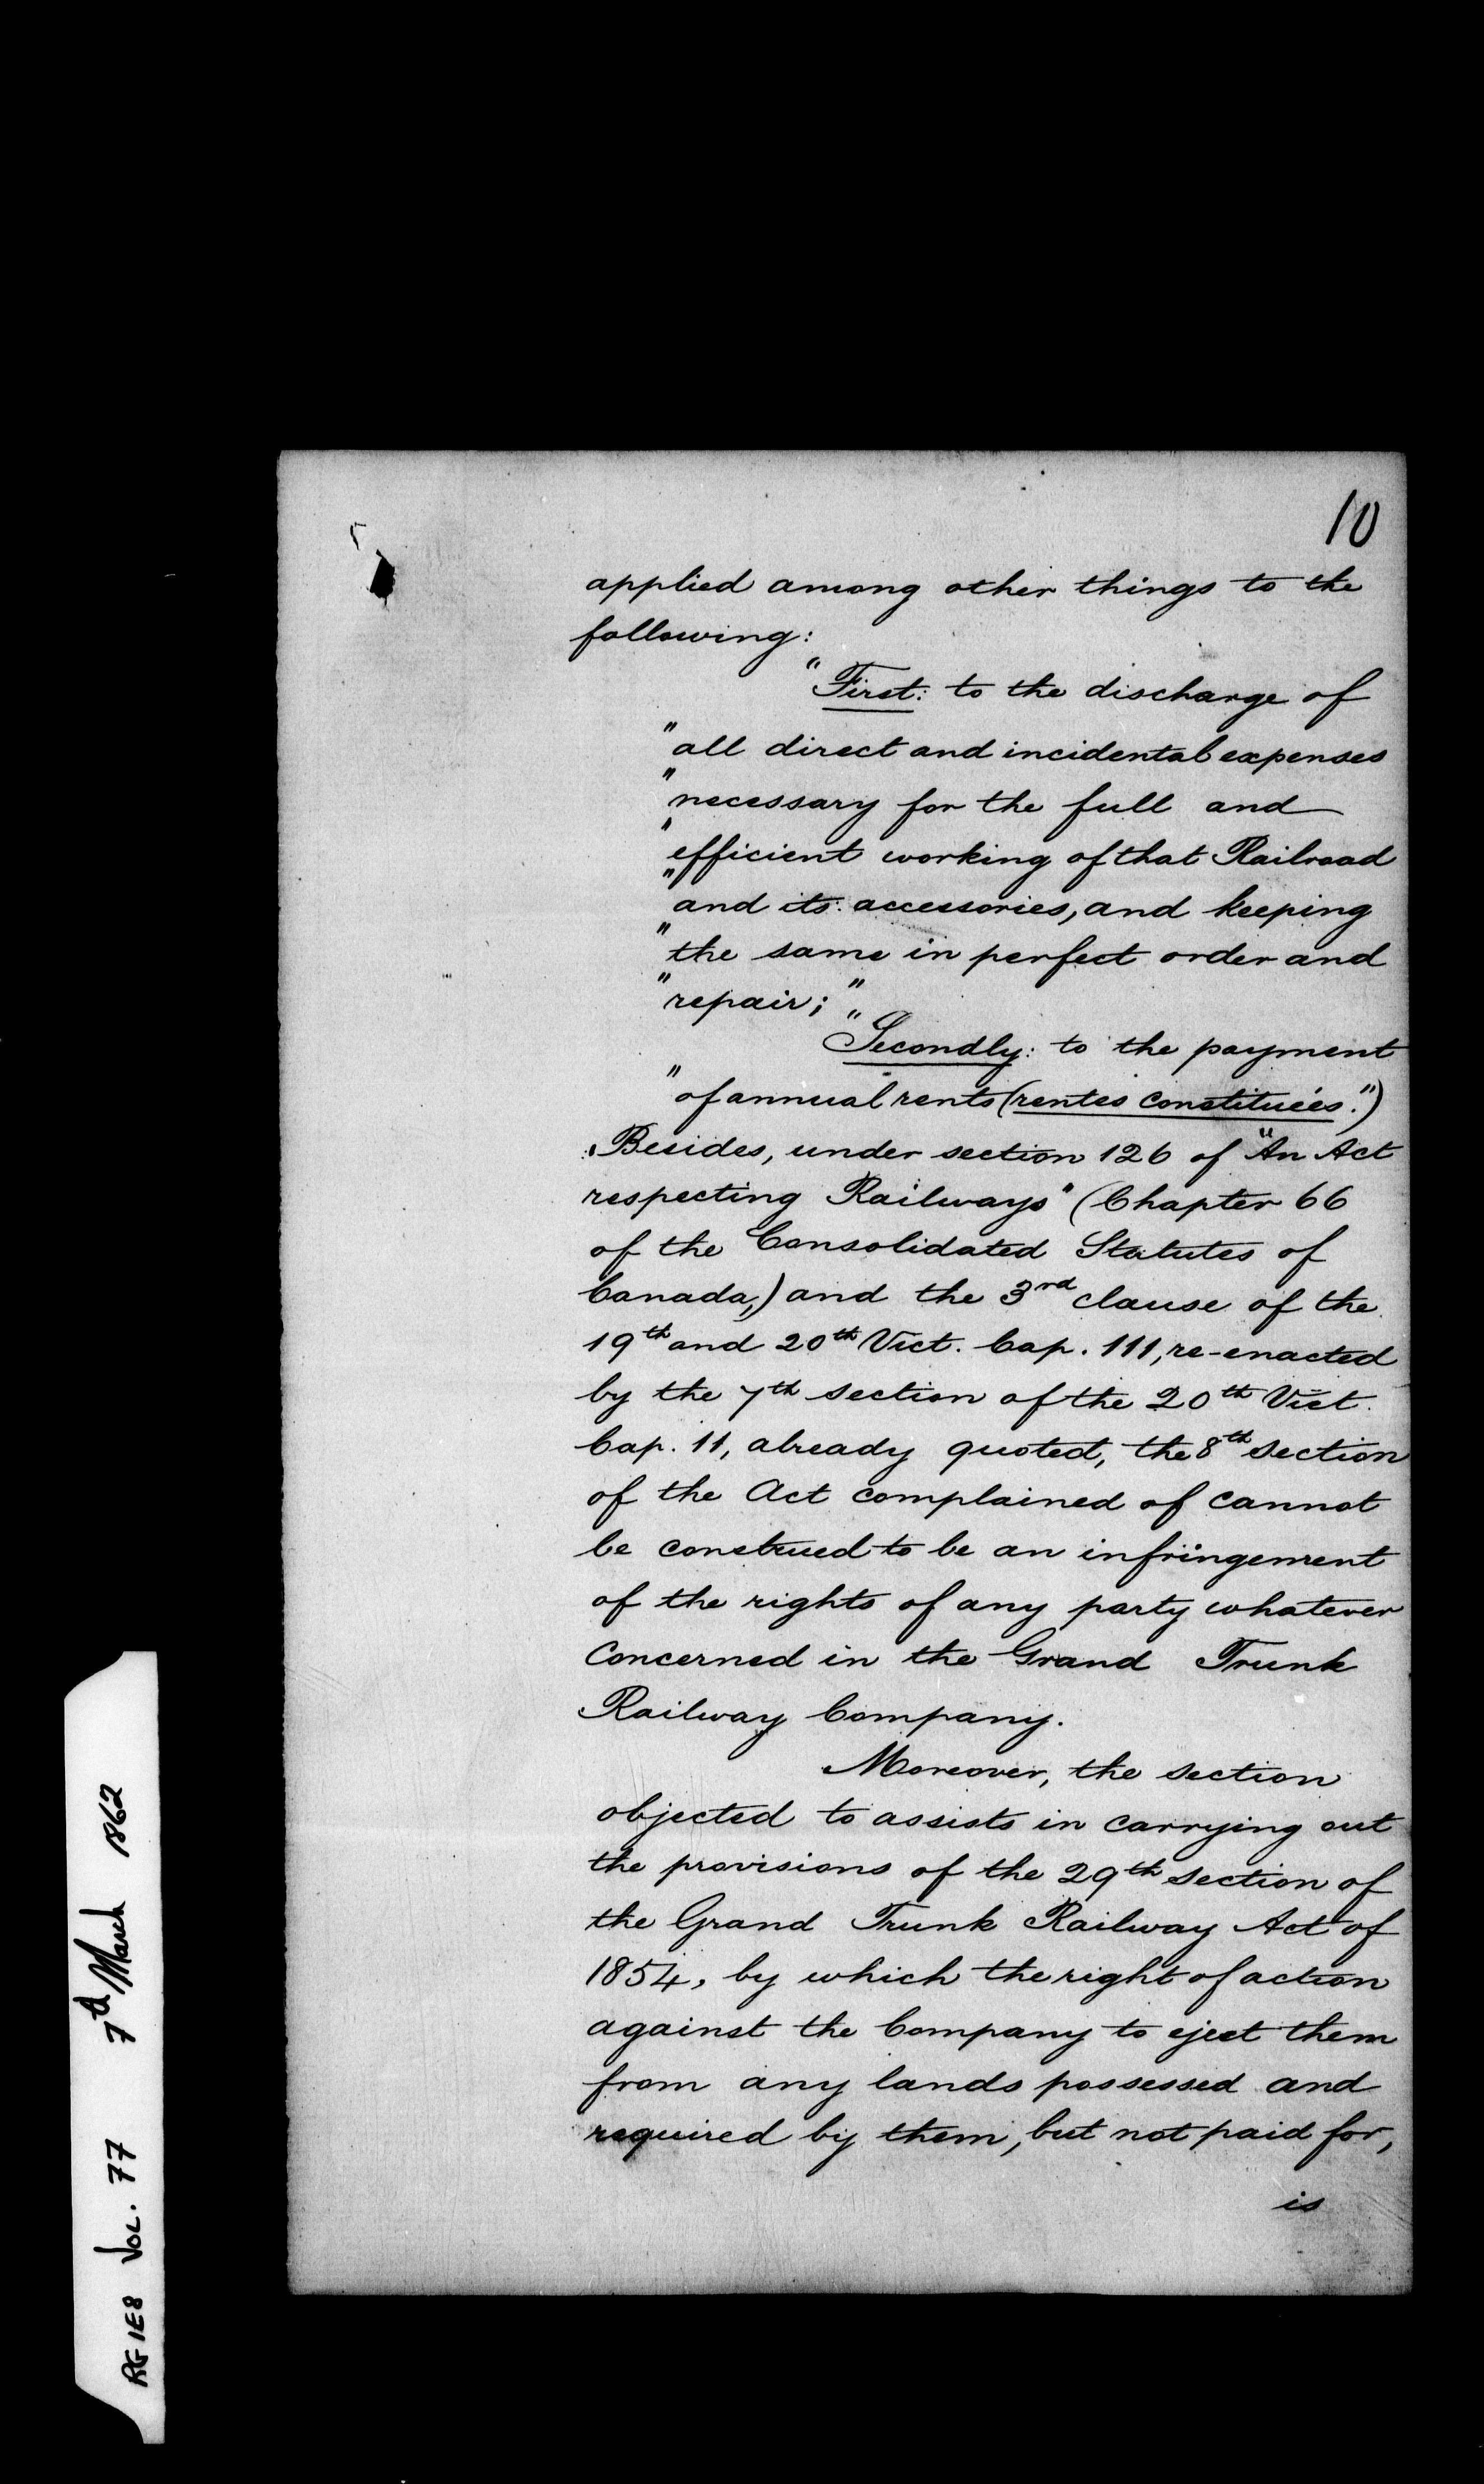 10
applied among other things to the
following:
"First: to the discharge of
"all direct and incidental expenses
"necessary for the full and
"efficient working of that Railroad
"and its accessories, and keeping
"the same in perfect order and
"repair;"
"Secondly: to the payment
"of annual rents (rentes constituées.")
Besides, under section 126 of "An Act
respecting Railways" (Chapter 66
of the Consolidated Statutes of
Canada,) and the 3rd clause of the
19th and 20th Vict. Cap. 111, re-enacted
by the 7th section of the 20th Vict.
Cap. 11, already quoted, the 8th section
of the Act complained of cannot
be construed to be an infringement
of the rights of any party whatever
concerned in the Grand Trunk
Railway Company.
Moreover, the section
objected to assists in carrying out
the provisions of the 29th section of
the Grand Trunk Railway Act of
1854, by which the right of action
against the Company to eject them
from any lands possessed and
required by them, but not paid for,
is
RG 1E8 VOL. 77 7th March 1862